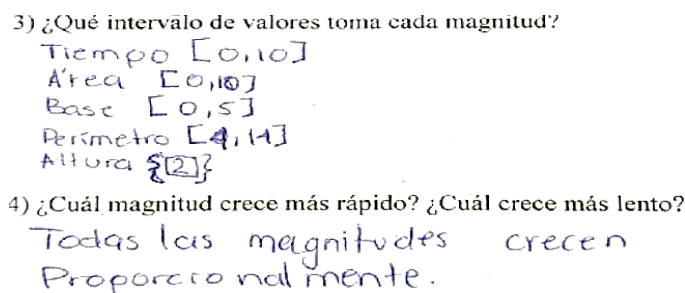 3) ¿Qué intervalo de valores toma cada magnitud?
Tiempo [0,10]
Área [0,10]
Base [0,5]
Perímetro [4,14]
Altura {[2]}
4) ¿Cuál magnitud crece más rápido? ¿Cuál crece más lento?
Todas las magnitudes crecen
Proporcionalmente.